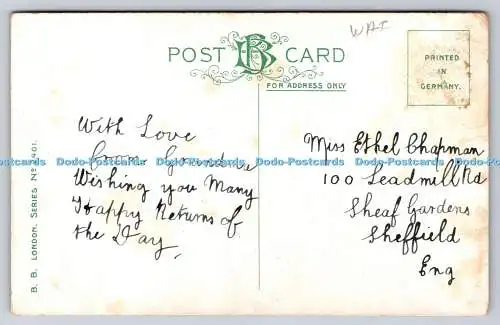 WAI
POST BB CARD
FOR ADDRESS ONLY
PRINTED
IN
GERMANY.
With Love
from
Wishing you Many
Happy Returns of
the Day
Miss Ethel Chapman
100 Leadmill Rd
Sheaf Gardens
Sheffield
Eng
B. B. LONDON, SERIES No
Dodo-Postcards Dodo-Postcards Dodo-Postcards Dodo-Postcards Dodo-Postcards